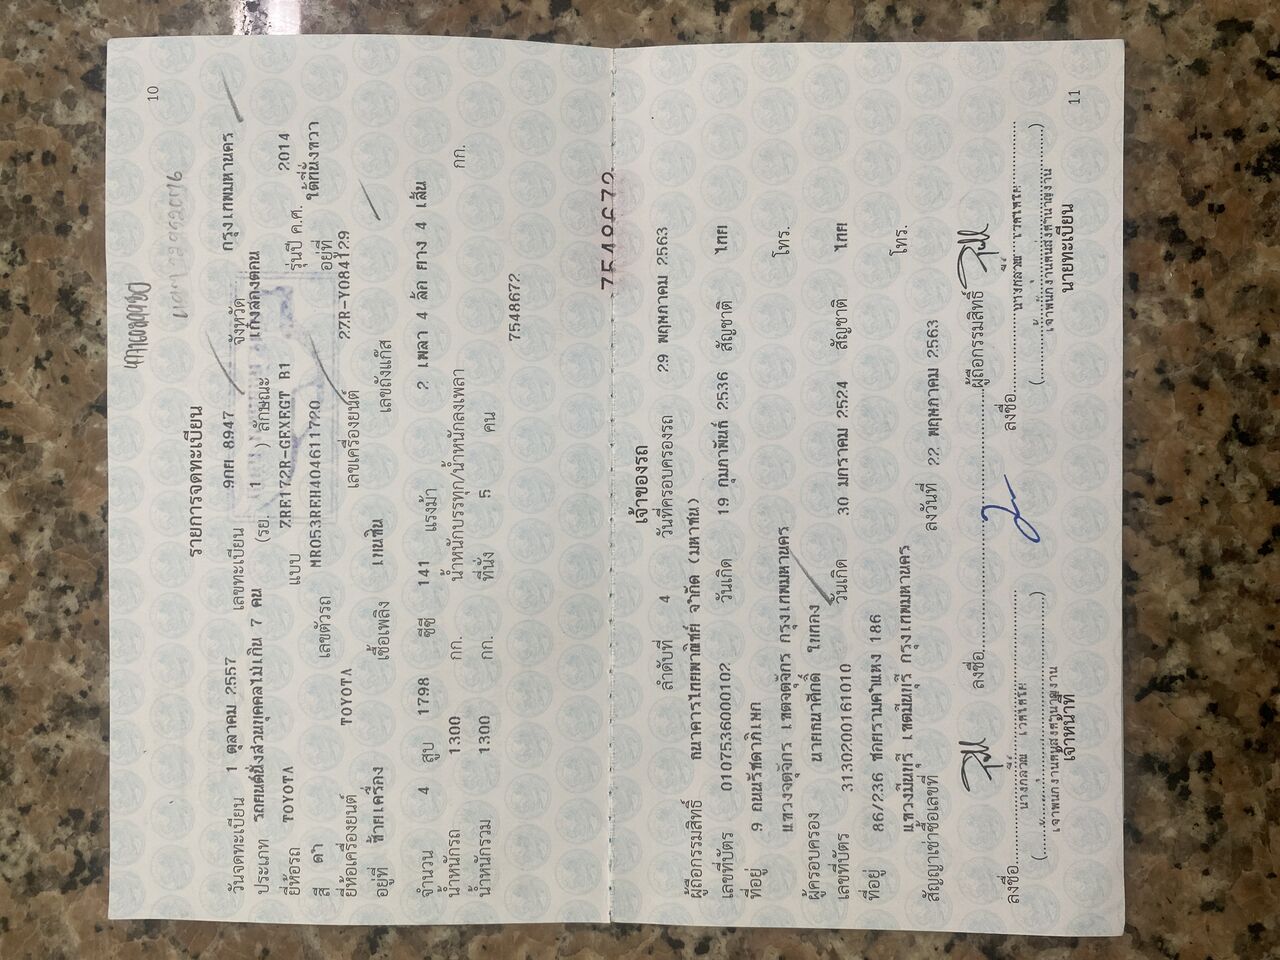 10
รายการจดทะเบียน
วันจดทะเบียน 1 ตุลาคม 2557 เลขทะเบียน 9กย 8947 จังหวัด กรุงเทพมหานคร
ประเภท รถยนต์นั่งส่วนบุคคลไม่เกิน 7 คน (รย. 1 ) ลักษณะ เก๋งสองตอน
ยี่ห้อรถ TOYOTA แบบ ZRE172R-GEXEGT R1 รุ่นปี ค.ศ. 2014
สี ดำ เลขตัวรถ MR053REH404611720 อยู่ที่ ใต้ที่นั่งขวา
ยี่ห้อเครื่องยนต์ TOYOTA เลขเครื่องยนต์ 2ZR-Y084129
อยู่ที่ ซ้ายเครื่อง เชื้อเพลิง เบนซิน เลขถังแก๊ส
จำนวน 4 สูบ 1798 ซีซี 141 แรงม้า 2 เพลา 4 ล้อ ยาง 4 เส้น
น้ำหนักรถ 1300 กก. น้ำหนักบรรทุก/น้ำหนักลงเพลา กก.
น้ำหนักรวม 1300 กก. ที่นั่ง 5 คน
7548672
7548672
เจ้าของรถ
ลำดับที่ 4 วันที่ครอบครองรถ 29 พฤษภาคม 2563
ผู้ถือกรรมสิทธิ์ ธนาคารไทยพาณิชย์ จำกัด (มหาชน)
เลขที่บัตร 0107536000102 วันเกิด 19 กุมภาพันธ์ 2536 สัญชาติ ไทย
ที่อยู่ 9 ถนนรัชดาภิเษก
แขวงจตุจักร เขตจตุจักร กรุงเทพมหานคร โทร.
ผู้ครอบครอง นายธนาศักดิ์ ใบทอง
เลขที่บัตร 3130200161010 วันเกิด 30 มกราคม 2524 สัญชาติ ไทย
ที่อยู่ 86/236 ซอยรามคำแหง 186
แขวงมีนบุรี เขตมีนบุรี กรุงเทพมหานคร โทร.
สัญญาเช่าซื้อเลขที่ ลงวันที่ 22 พฤษภาคม 2563
ลงชื่อ ผู้ถือกรรมสิทธิ์
ลงชื่อ ลงชื่อ
เจ้าหน้าที่ นายทะเบียน
11